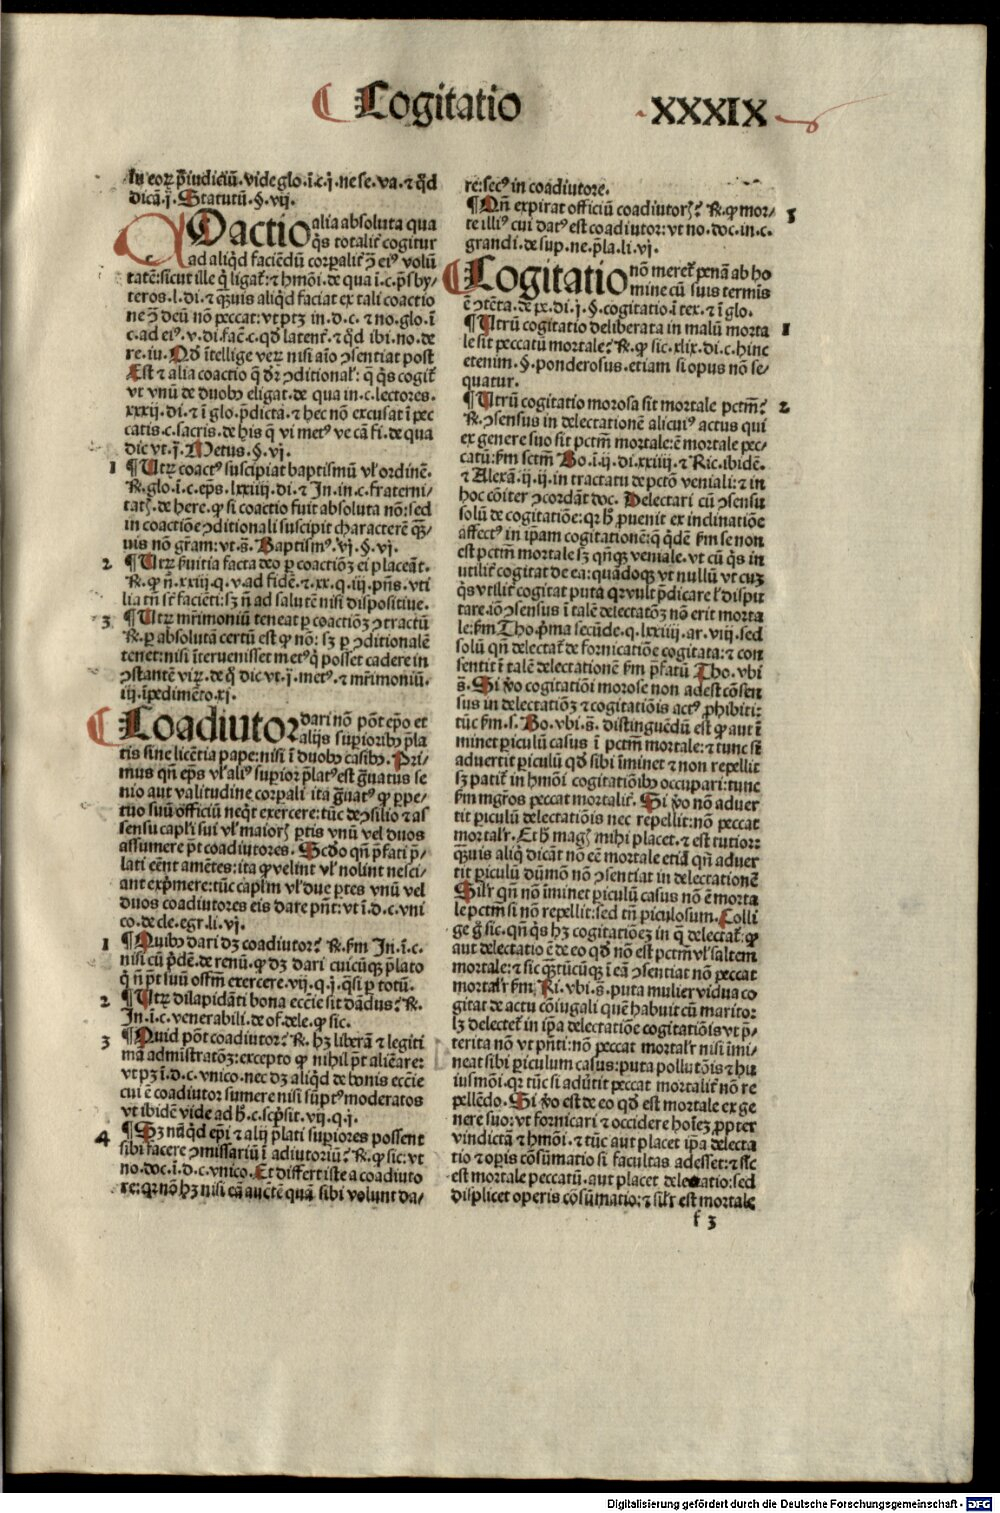 Cogitatio XXXIX
in eoꝝ p̄iudiciū. vide glo. ī. c. j. ne se. va. ⁊ qđ
dicā. j̄. Statutū. §. vij.
Oactio alia absoluta qua
q̇s totalit̃ cogitur
ad aliqđ faciēdū corꝑalit̃ ꝯ̄ ei⁹ volū
tatē: sicut ille q̇ ligat̃: ⁊ hmōi. de qua ī. c. p̄sby-
teros. l. di. ⁊ q̄uis aliqđ faciat ex tali coactio
ne ꝯ̄ deū nō peccat: vt ptꝫ in. d. c. ⁊ no. glo. ī
c. ad ei⁹. v. di. facē. c. qđ latent̃. ⁊ qđ ibi no. de
re. iu. Qđ ītellige veꝝ nisi aīo ꝯsentiat post
Est ⁊ alia coactio q̄ dr̄ ꝯditionaƚ: q̄ q̇s cogit̃
vt vnū de duobꝰ eligat. de qua in. c. lectores.
xxxij. di. ⁊ ī glo. p̄dicta. ⁊ hec nō excusat ī pec
catis. c. sacris. de his q̄ vi met⁹ ve cā fi. de qua
dic vt. j̄. Metus. §. vj.
1 ¶ Utꝝ coact⁹ suscipiat baptismū vƚ ordinē.
℞. glo. ī. c. ep̄s. lxxiiij. di. ⁊ In. in. c. fraterni-
tat̃. de here. ꝙ si coactio fuit absoluta nō: sed
in coactiōe ꝯditionali suscipit characterē q̄ꝫ
uis nō gr̄am: vt. s̄. Baptism⁹. vj. §. vj.
2 ¶ Utꝝ ẜuitia facta deo ꝑ coactiōꝫ ei placeāt.
℞. ꝙ n̄. xxiij. q. v. ad fidē. ⁊. xx. q. iij. pn̄s. vti
lia tn̄ st̄ faciēti: sꝫ n̄ ad salutē nisi dispositiue.
3 ¶ Utꝝ mr̄imoniū teneat ꝑ coactiōꝫ ꝯtractū
℞. ꝑ absolutā certū est ꝙ nō: sꝫ ꝑ ꝯditionalē
tenet: nisi īteruenisset met⁹ q̇ posset cadere in
ꝯstantē viꝝ. de q̊ dic vt. j̄. met⁹. ⁊ mr̄imoniū.
iij. īpedimēto. xj.
Coadiutor dari nō pōt ep̄o et
alijs superioribꝰ p̄la
tis sine licētia pape: nisi ī duobꝰ casibꝰ. Pri-
mus qn̄ ep̄s vƚ ali⁹ superior p̄lat⁹ est ḡuatus se
nio aut valitudine corꝑali ita ḡuat⁹ ꝙ ꝑpe-
tuo suū officiū neq̇t exercere: tūc de ꝯsilio ⁊ as
sensu capƚi sui vƚ maior̃ ꝑtis vnū vel duos
assumere pt̄ coadiutores. Scđo qn̄ p̄fati p̄-
lati eēnt amētes: ita ꝙ velint vƚ nolint nesci-
ant exp̄mere: tūc capƚm vƚ due ꝑtes vnū vel
duos coadiutores eis dare pn̄t: vt ī. d. c. vni
co. de cle. egr. li. vj.
1 ¶ Quibꝰ dari dꝫ coadiutor? ℞. ẜm In. ī. c.
nisi cū p̄dē. de renū. ꝙ dꝫ dari cuicūqꝫ p̄lato
q̇ n̄ pt̄ suū offm̄ exercere. vij. q. j. q̄si ꝑ totū.
2 ¶ Utꝝ dilapidāti bona ecc̄ie sit dādus? ℞.
In. ī. c. venerabili. de of. dele. ꝙ sic.
3 ¶ Quid pōt coadiutor? ℞. hꝫ liberā ⁊ legiti
mā administratōꝫ: excepto ꝙ nihil pt̄ aliēare:
vt pꝫ ī. d. c. vnico. nec dꝫ aliqđ de bonis ecc̄ie
cui ē coadiutor sumere nisi sūpt⁹ moderatos
vt ibidē vide ad h̄. c. scp̄sit. vij. q. j.
4 ¶ Sꝫ nūq̇d ep̄i ⁊ alij p̄lati superiores possent
sibi facere ꝯmissariū ī adiutoriū? ℞. ꝙ sic: vt
no. doc. ī. d. c. vnico. Et differt iste a coadiuto
re: qꝛ nō hꝫ nisi eā auctē quā sibi volunt da-
re: sec⁹ in coadiutore.
¶ Qn̄ expirat officiū coadiutor̃? ℞. ꝙ mor- 5
te illi⁹ cui dat⁹ est coadiutor: vt no. doc. in. c.
grandi. de sup. ne. p̄la. li. vj.
Cogitatio nō meret̃ penā ab ho
mine cū suis terminis
ē ꝯtēta. de pe. di. j. §. cogitatio. ī tex. ⁊ ī glo.
¶ Utrū cogitatio deliberata in malū morta 1
le sit peccatū mortale? ℞. ꝙ sic. xlix. di. c. hinc
etenim. §. ponderosus. etiam si opus nō se-
quatur.
¶ Utrū cogitatio morosa sit mortale pctm̄? 2
℞. ꝯsensus in delectationē alicui⁹ actus qui
ex genere suo sit pctm̄ mortale: ē mortale pec-
catū: ẜm sctm̄ Bo. ī. ij. di. xxiiij. ⁊ Ric. ibidē.
⁊ Alexā. ij. ij. in tractatu de pctō veniali: ⁊ in
hoc cōiter ꝯcordāt doc. Delectari cū ꝯsensu
solū de cogitatiōe: qꝛ h̄ ꝓuenit ex inclinatiōe
affect⁹ in ip̄am cogitationē: q̇ q̇dē ẜm se non
est pctm̄ mortale sꝫ qn̄qꝫ veniale. vt cū q̇s in
utilit̃ cogitat de ea: quādoqꝫ vt nullū vt cuꝫ
q̇s vtilit̃ cogitat puta qꝛ vult p̄dicare ƚ dispu
tare. iō ꝯsensus ī talē delectatōꝫ nō erit morta
le: ẜm Tho. p̄ma secūde. q. lxxiiij. ar. viij. sed
solū qn̄ delectat̃ de fornicatiōe cogitata: ⁊ con
sentit ī talē delectationē ẜm p̄fatū Tho. vbi
s̄. Si v̊o cogitatiōi morose non adest cōsen
sus in delectatiōꝫ ⁊ cogitatiōis act⁹ ꝓhibiti:
tūc ẜm. s. Bo. vbi. s̄. distinguēdū est ꝙ aut ī
minet ꝑiculū casus ī pctm̄ mortale: ⁊ tunc si
aduertit ꝑiculū qđ sibi īminet ⁊ non repellit
sꝫ patit̃ in hmōi cogitatiōibꝰ occupari: tunc
ẜm mgr̄os peccat mortalit̃. Si v̊o nō aduer
tit ꝑiculū delectatiōis nec repellit: nō peccat
mortaƚr. Et h̄ mag̃ mihi placet. ⁊ est tutior:
q̄ꝫuis aliq̇ dicāt nō eē mortale etiā qn̄ aduer
tit ꝑiculū dūmō nō ꝯsentiat in delectationē
Siƚr qn̄ nō īminet ꝑiculū casus nō ē morta
le pctm̄ si nō repellit: sed tn̄ ꝑiculosum. Colli
ge ḡ sic. qn̄ q̇s hꝫ cogitatiōeꝫ in q̄ delectat̃: ꝙ
aut delectatio ē de eo qđ nō est pctm̄ vƚ saltem
mortale: ⁊ sic q̄ꝫtūcūqꝫ ī eā ꝯsentiat nō peccat
mortaƚr ẜm Ri. vbi. s̄. puta mulier vidua co
gitat de actu cōiugali quē habuit cū marito:
lꝫ delectet̃ in ip̄a delectatiōe cogitatiōis vt p̄-
terita nō vt pn̄ti: nō peccat mortaƚr nisi īmi-
neat sibi periculum casus: puta pollutōis ⁊ hu
iusmōi. qꝛ tūc si adūtit peccat mortalit̃ nō re
pellēdo. Si v̊o est de eo qđ est mortale ex ge
nere suo: vt fornicari ⁊ occidere hoīeꝫ ꝓpter
vindictā ⁊ hmōi. ⁊ tūc aut placet ip̄a delecta
tio ⁊ oꝑis cōsūmatio si facultas adesset: ⁊ sic
est mortale peccatū. aut placet delectatio: sed
displicet operis cōsūmatio: ⁊ siƚr est mortale
f 3
Digitalisierung gefördert durch die Deutsche Forschungsgemeinschaft - DFG